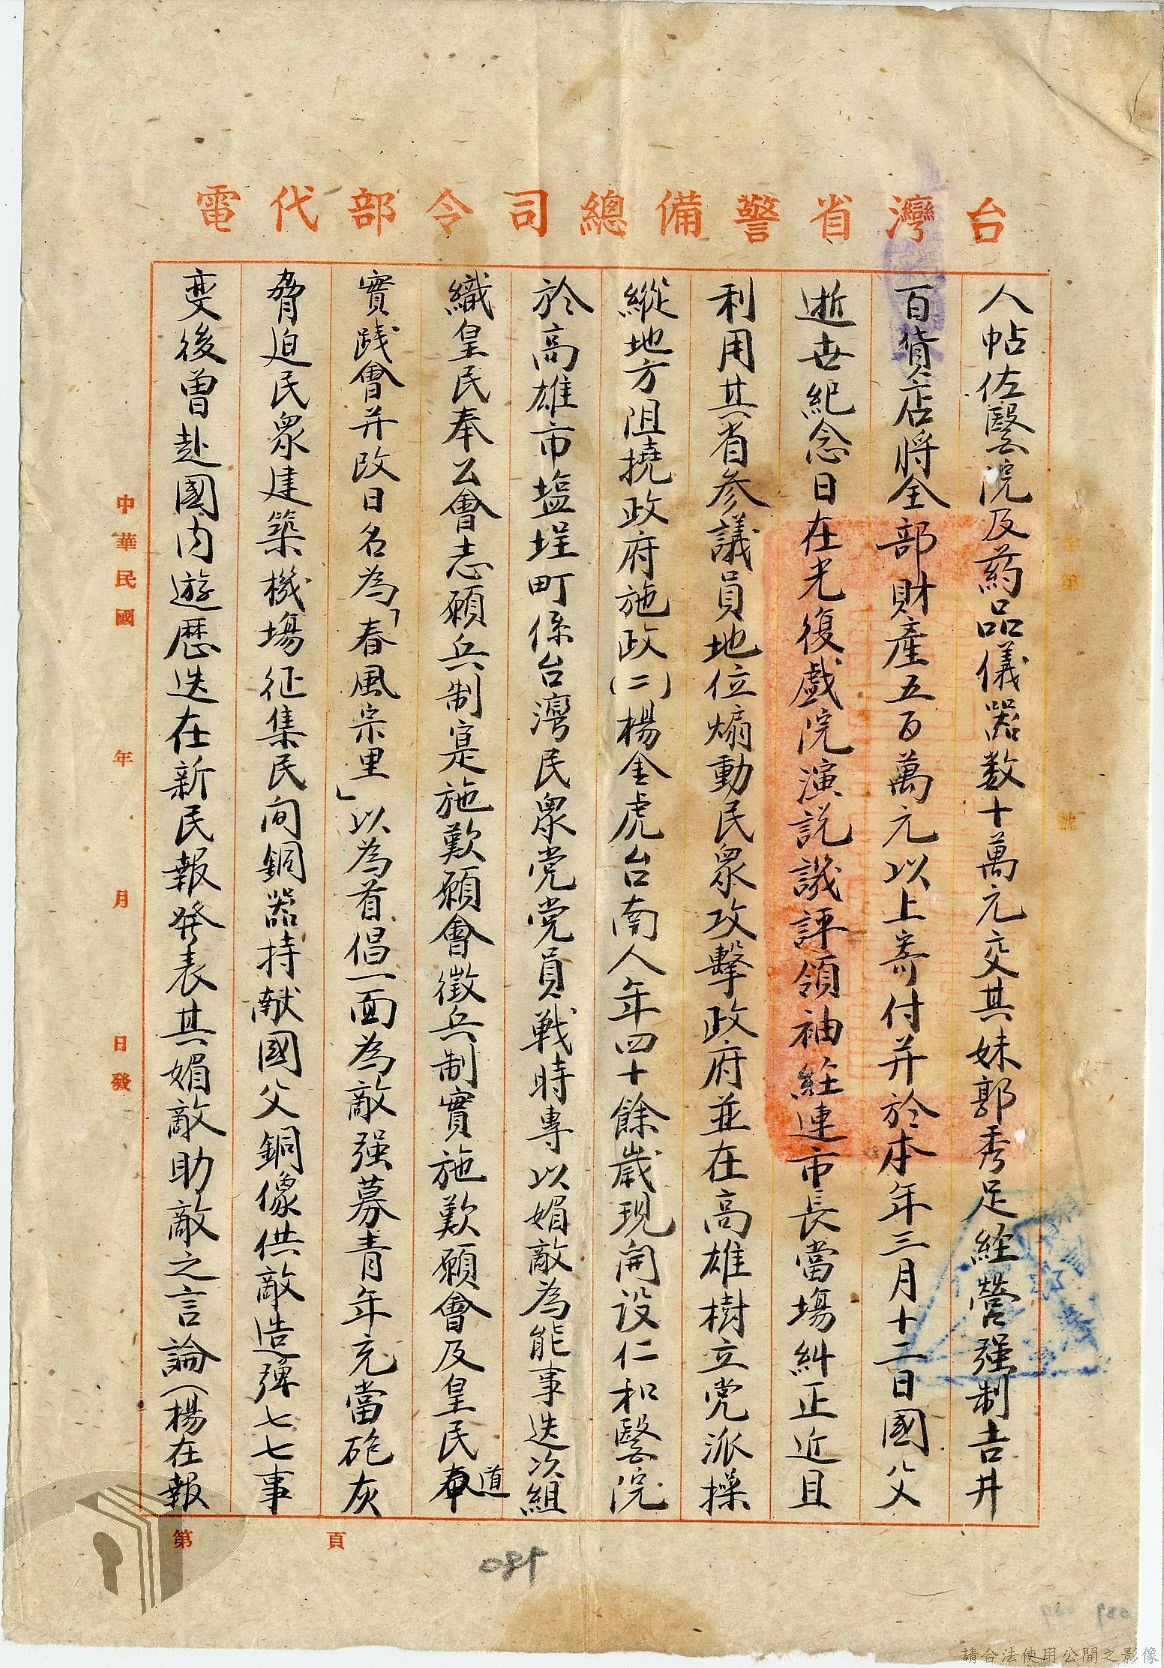 台灣省警備總司令部代電
人帖佐醫院及葯品儀器数十萬元交其妹郭秀足経營强制吉井
百貨店將全部財產五百萬元以上寄付并於本年三月十二日國父
逝世紀念日在光復戲院演説譏評領袖経連市長當場糾正近且
利用其省参議員地位煽動民衆攻擊政府並在高雄樹立党派操
縱地方阻撓政府施政(二)楊金虎台南人年四十餘歲現開設仁和醫院
於高雄市塩埕町係台灣民衆党党員戰時專以媚敵為能事迭次組
織皇民奉公會志願兵制寔施歎願會徵兵制實施歎願會及皇民奉道
實践會并改日名為「春風宗里」以為首倡一面為敵强募青年充當砲灰
脅迫民衆建築機塲征集民间銅器持献國父銅像供敵造彈七七事
变後曾赴國内遊歷迭在新民報発表其媚敵助敵之言論(楊在報
中華民國 年 月 日發
第 頁
請合法使用公開之影像